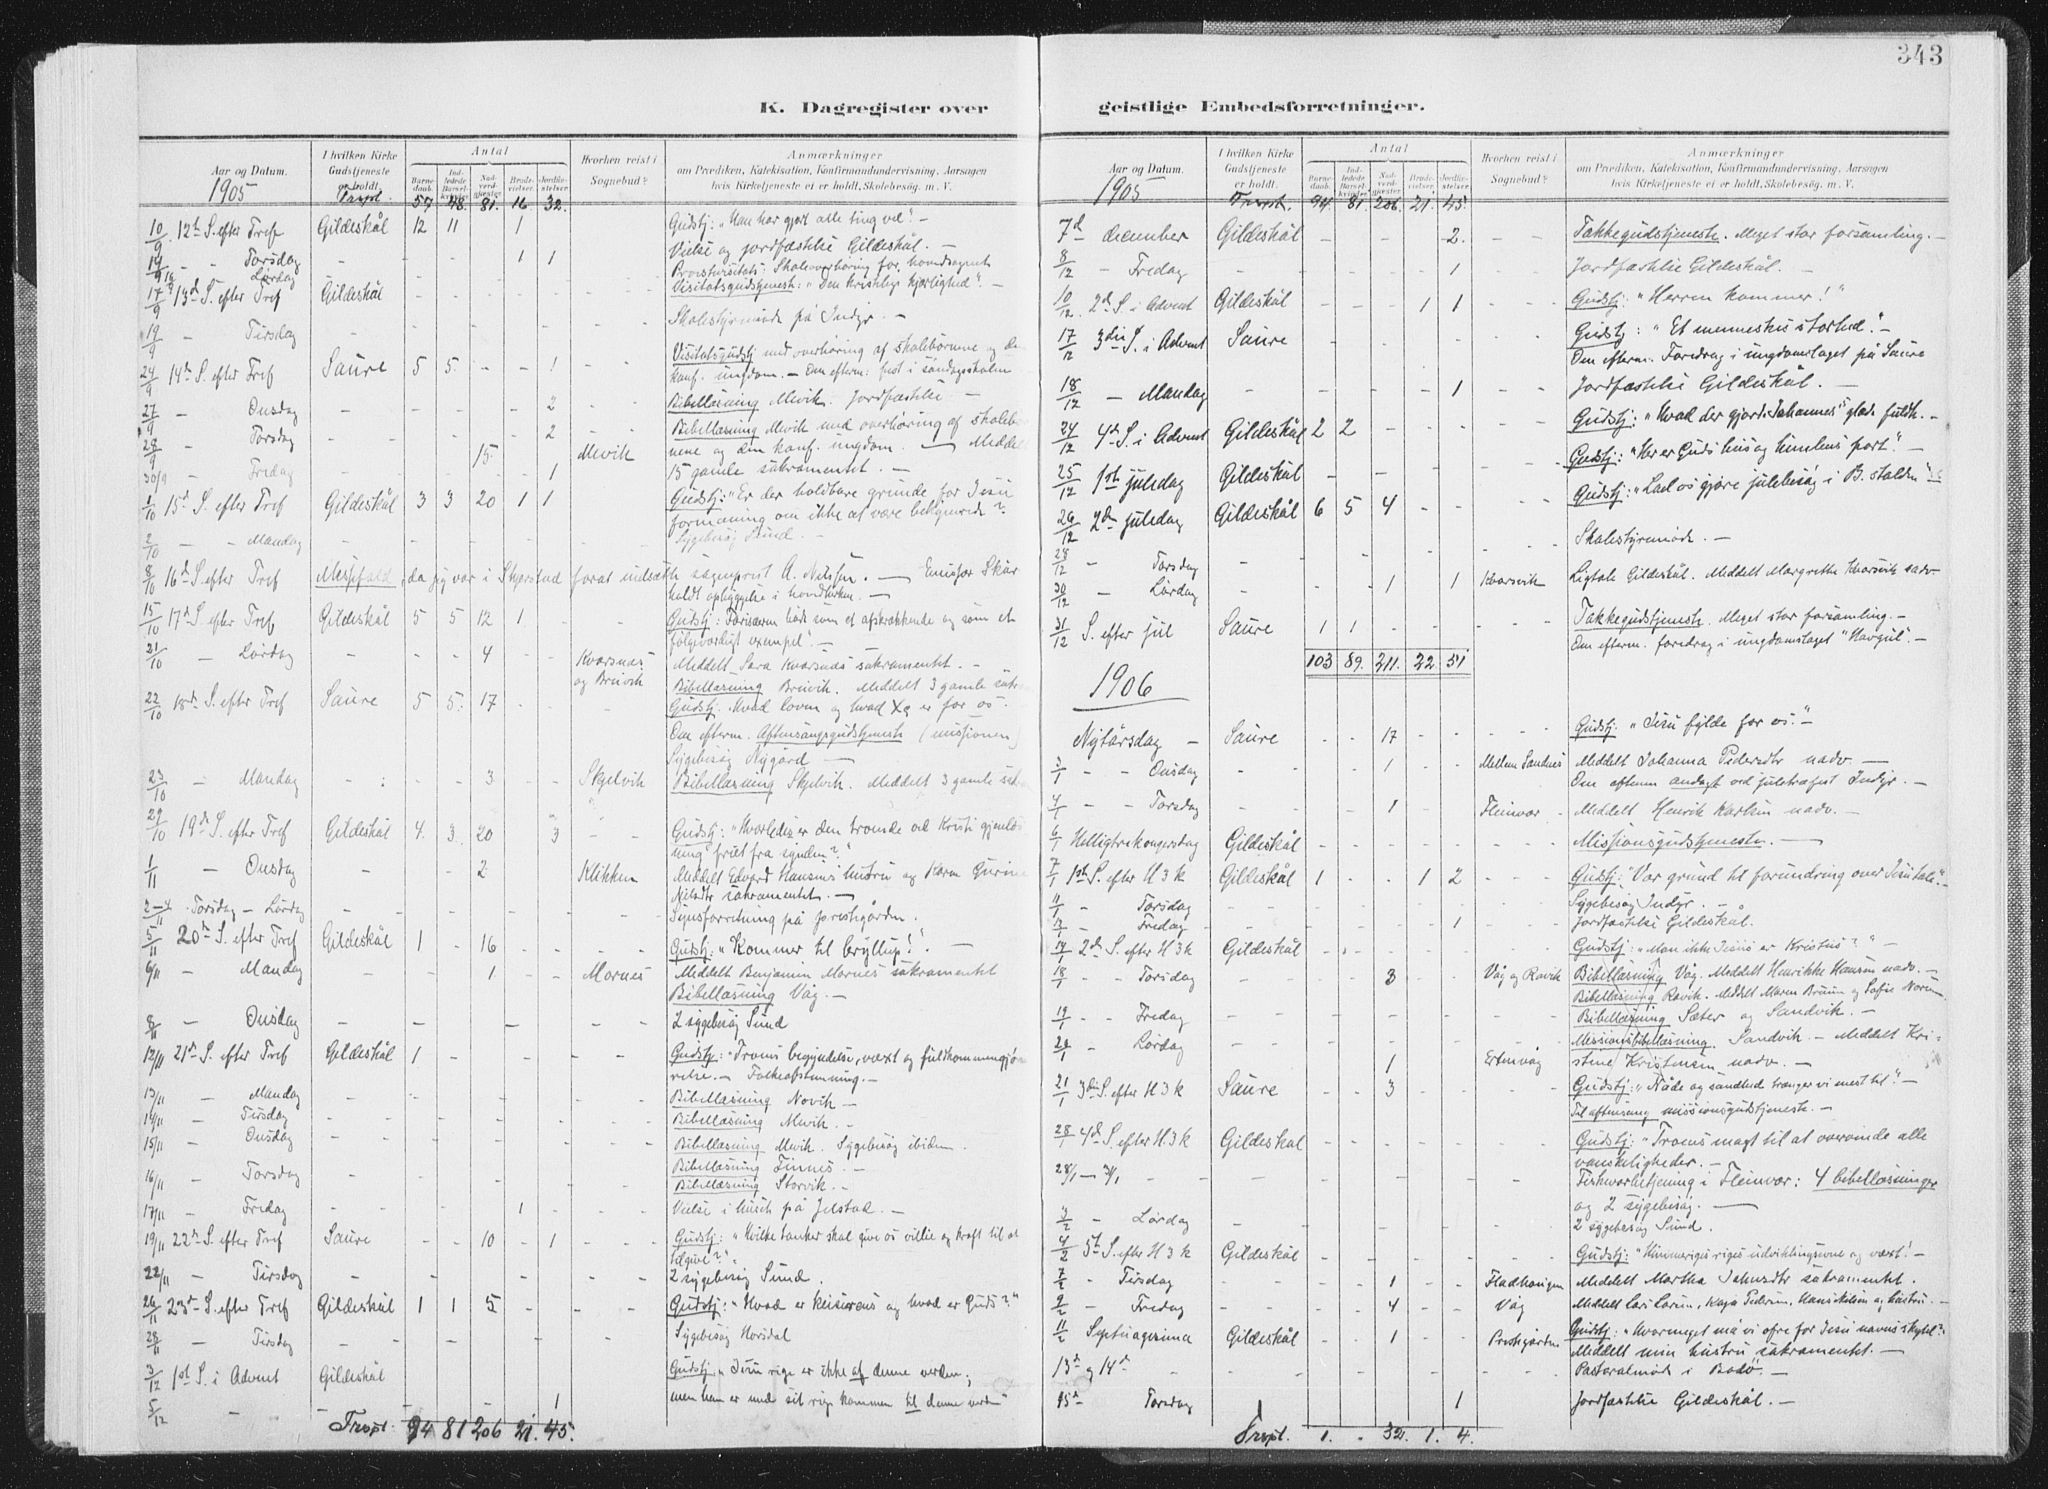 343
K. Dagregister over
Aar og Datum.
I hvilken Kirke Gudstjeneste er holdt.
Antal
Barnedaab. Indledede Barselkvinder. Nadverdgjester. Brudevielser. Jordfæstelser.
Hvorhen reist i Sognebud?
Anmærkninger
om Prædiken, Katekisation, Konfirmandundervisning, Aarsagen
hvis Kirketjeneste ei er holdt, Skolebesøg. m. V.
1905 Trspt. 57 48. 81. 16 32.
10/9 12te S. efter Tref Gildeskål 12 11 1 Gudstj: "Han har gjort alle ting vel". -
14/9 - - Torsdag - - - - 1 1 Vielse og jordfæstelse Gildeskål. -
Lørdag
17/9 13d S. efter Tref Gildeskål - - - - - Visitatsgudstjenest: "Den kristelige kjærlighed". -
19/9 - Tirsdag Skolestyremøde på Indyr. -
24/9 14de S. efter Tref Saure 5 5 - - 1 Visitatsgudstj med overhøring af skolebørnene og de
konf. ungdom. - Om efterm: fest i søndagsskolen
27/9 - Onsdag - - - - 2 Bibellæsning Mevik. Jordfæstelse -
28/9 - Torsdag - - - - 2 Bibellæsning Mevik med overhøring af skolebør
nene og den konf. ungdom. - Meddel
15 Mevik 15 gamle sakramentet. -
30/9 - Fredag - - - - 1
1/10 15d S. efter Tref Gildeskål 3 3 20 1 1 Gudstj: "Er der holdbare grunde for Jesu
formaning om ikke at være bekymrede?"
2/10 - - Mandag - - - - Sygebesøg Sund. -
8/10 16d S. efter Tref Messefald, da jeg var i Skjerstad forat indsætte sogneprest A. Nilssen. - Emissær Skår
holdt opbyggelse i hovedkirken. -
15/10 17d S. efter Tref Gildeskål 5 5 12 1 - Gudstj: Farisæeren både som et afskrækkende og som et
følgeværdigt exempel". -
21/10 - Lørdag - - - 4 - - Kvarsnes og Breivik Meddelt Sara Kvarsnæs sakramentet. -
Bibellæsning Breivik. Meddelt 3 gamle sakr
22/10 18de S. efter Tref Saure 5 5 17 - - Gudstj. Hvad loven og hvad Xs er for os".
Om efterm. Aftensangsgudstjeneste (missionen)
Sygebesøg Nygård -
23/10 - Mandag - - 3 - - Skjelvik Bibellæsning Skjelvik. Meddelt 3 gamle sakr
29/10 19de S. efter Tref Gildeskål 4. 3 20 3 - - Gudstj: "Hvorledes er den troende ved Kristi gjenløs
ning friet fra synden?"
1/11 - Onsdag - - 2 - - Klikken Meddelt Edvard Hansens hustru og Karen Gurine
Nilsdtr sakramentet. -
2-4/11 Torsdag - Lørdag - - Synsforretning på prestegården.
5/11 20de S. efter Tref Gildeskål 1 - 16 - - - Gudstj: "Kommer til bryllup!". -
6/11 - Mandag - - 1 - - Mornes Meddelt Benjamin Mornes sakramentet
Bibellæsning Våg. -
8/11 - Onsdag - - - - - 2 sygebesøg Sund
12/11 21de S. efter Tref Gildeskål 1 - - - - Gudstj: "Troens begyndelse, væxt og fuldkommengjø
relse. - Folkeafstemning. -
13/11 - Mandag - Bibellæsning Novik -
14/11 - Tirsdag - Bibellæsning Mevik. -
15/11 - Onsdag - Bibellæsning Mevik. Sygebesøg ibidem.
Bibellæsning Finnes. -
16/11 - Torsdag - Bibellæsning Storvik. -
17/11 - Fredag - - - 1 - Vielse i huset på Jelstad. -
19/11 22de S. efter Tref Saure - - 10 - 1 Gudstj: "Hvilke tanker skal give os villie og kraft til at
tilgive?".
22/11 - Tirsdag - - - - 2 sygebesøg Sund.
26/11 23de S. efter Tref Gildeskål 1 1 5 - - Gudstj: "Hvad er keiserens og hvad er Guds?"
28/11 - Tirsdag - - - - Sygebesøg Horsdal
3/12 1st S. i Advent Gildeskål Gudstj. "Jesu rige er ikke af denne verden;
5/12 - - - - - - 1 men han er med sit rige kommen til denne verden"
Trspt. 94 81 206 21. 45.
geistlige Embedsforretninger.
Aar og Datum.
I hvilken Kirke Gudstjeneste er holdt.
Antal
Barnedaab. Indledede Barselkvinder. Nadverdgjester. Brudevielser. Jordfæstelser.
Hvorhen reist i Sognebud?
Anmærkninger
om Prædiken, Katekisation, Konfirmandundervisning, Aarsagen
hvis Kirketjeneste ei er holdt, Skolebesøg. m. V.
1905 Trspt. 94. 81. 206. 21. 45.
7d december Gildeskål - - - - 2. - - Takkegudstjeneste. Meget stor forsamling. -
8/12 - Fredag - - - - 1 Jordfæstelse Gildeskål. -
10/12 2d S. i Advent Gildeskål - - - 1 1 - - Gudstj: "Herren kommer!"
17/12 3die S. i Advent Saure - - - - - Gudstj: "Et menneskes storhed". -
Om efterm. Foredrag i ungdomslaget på Saure
18/12 - Mandag - - - - 1 - - Jordfæstelse Gildeskål. -
24/12 4de S. i Advent Gildeskål 2 2 - - - - Gudstj: "Hvad der gjorde Johannes' glæde fuldk. -
25/12 1ste juledag Gildeskål - - Gudstj: "Her er Guds hus og himlens port". -
26/12 2den juledag Gildeskål 6 5 4 - - - Gudstj: "Lad os gjøre julebesøg i B. stalden"
28/12 - Torsdag - - Skolestyremøde. -
30/12 - Lørdag - - - 1 1 Kvarsvik Ligtale Gildeskål. Meddelt Margrethe Kvarsvik nadv.
31/12 S. efter jul Saure 1 1 - - - Takkegudstjeneste. Meget stor forsamling. -
Om efterm. foredrag i ungdomslaget "Havgul". -
103 89. 211. 22 51
1906
Nytårsdag - Saure - - 17 - - - Gudstj: "Jesu fylde for os". -
3/1 - - Onsdag - - 1 - - Mellem Sandnes Meddelt Johanna Pedersdtr nadv. -
Om efterm andagt ved juletræfest Indyr. -
4/1 - - Torsdag - - 1 - - Fleinvær - Meddelt Henrik Karlsen nadv. -
6/1 Helligtrekongersdag Gildeskål - - - - - Missionsgudstjeneste. -
7/1 1ste S. efter H 3 k Gildeskål 1 - - 1 2 - - Gudstj: "Vor grund til forundring over Jesu tale". -
11/1 - Torsdag - - - - Sygebesøg Indyr. -
12/1 - Fredag - - - - 1 Jordfæstelse Gildeskål.
14/1 2den S. efter H 3 k Gildeskål - - Gudstj: "Mon ikke Jesus er Kristus?" -
18/1 - Torsdag - - 3 - - Våg og Ravik Bibellæsning Våg. Meddelt Henrikke Hansen nadv. -
Bibellæsning Ravik. Meddelt Maren Bruun og Sofie Norum
19/1 - Fredag - - - - Bibellæsning Sæter og Sandvik. -
20/1 - Lørdag - - 1 - - Ertenvåg Missionsbibellæsning. Sandvik. - Meddelt Kri-
stine Kristensen nadv. -
21/1 3die S. efter H 3 k Saure - - 3 - - Gudstj: "Nåde og sandhed trænger vi mest til". -
Til aftensang missionsgudstjeneste. -
28/1 4de S. efter H. 3 k Gildeskål - - - - Gudstj: "Troens magt til at overvinde alle
vanskeligheder. -
28/1 - 3/1 - - - Fiskeværbetjening i Fleinvær: 4 bibellæsninger
og 2 sygebesøg. -
3/2 - Lørdag - - - - 2 sygebesøg Sund.
4/2 5te S. efter H 3 k Gildeskål - - - - Gudstj: "Himmeriges riges udviklingsevne og vext! -
7/2 - Tirsdag - - 1 - - Fladhaugen Meddelt Martha Johnsdtr sakramentet.
9/2 - Fredag - - 4 - - Våg Meddelt Lars Larsen, Kaja Pedersen, Hans Nilsen og hustru. -
11/2 Septuagesima Gildeskål - - 1 - - Prestegården Gudstj: "Hvormeget må vi ofre for Jesu navns skyld?"
Meddelt min hustru sakramentet. -
13de og 14de - - - - Pastoralmøde i Bodø". -
15de Torsdag - - - - 1 Jordfæstelse Gildeskål. -
Trspt. 1. - 32. 1. 4.